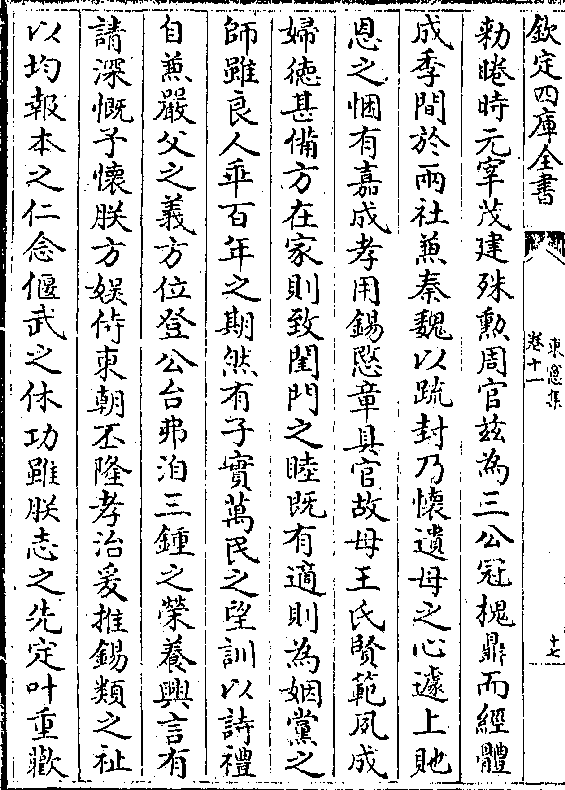 欽定四庫全書
東窻集
卷十一
十七
勑睠時元宰茂建殊勲周官兹為三公冠槐鼎而經體
成季間於兩社兼秦魏以疏封乃懷遺母之心遽上貤
恩之悃有嘉成孝用錫愍章具官故母王氏賢範夙成
婦徳甚備方在家則致閨門之睦既有適則為姻黨之
師雖良人乖百年之期然有子實萬民之望訓以詩禮
自兼嚴父之義方位登公台弗洎三鍾之榮養興言有
請深慨予懷朕方娱侍東朝丕隆孝治爰推錫類之祉
以均報本之仁念偃武之休功雖朕志之先定叶重歡